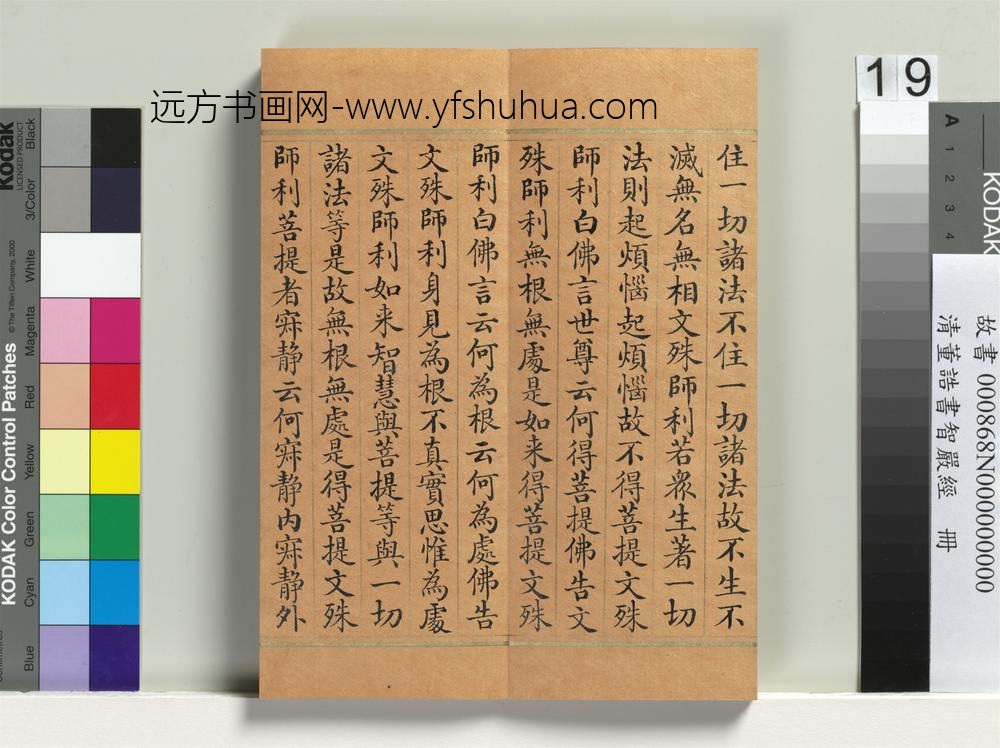 远方书画网-www.yfshuhua.com
住一切諸法不住一切諸法故不生不
滅無名無相文殊師利若衆生著一切
法則起煩惱起煩惱故不得菩提文殊
師利白佛言世尊云何得菩提佛告文
殊師利無根無處是如来得菩提文殊
師利白佛言云何為根云何為處佛告
文殊師利身見為根不真實思惟為處
文殊師利如来智慧與菩提等與一切
諸法等是故無根無處是得菩提文殊
師利菩提者寂静云何寂静内寂静外
19
KODAK
A
1
2
3
4
故書 000868N000000000
清董誥書智嚴經 冊
Kodak
LICENSED PRODUCT
KODAK Color Control Patches
© The Tiffen Company, 2000
Blue
Cyan
Green
Yellow
Red
Magenta
White
3/Color
Black